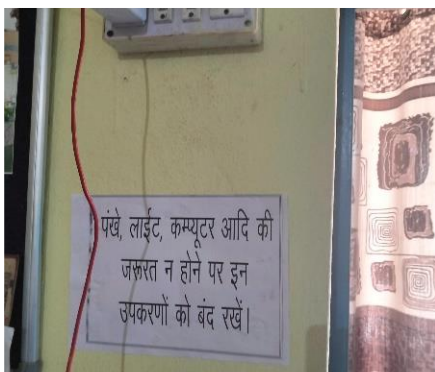 पंखे, लाईट, कम्प्यूटर आदि की
जरूरत न होने पर इन
उपकरणों को बंद रखें।